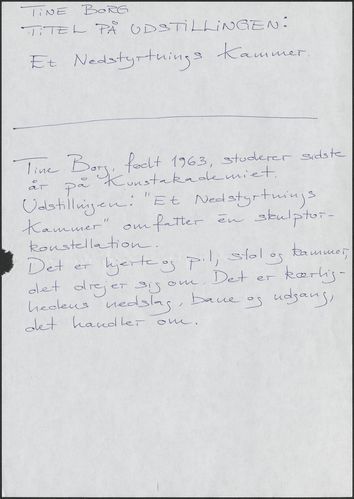 TINE BORG
TITEL PÅ UDSTILLINGEN:
Et Nedstyrtnings Kammer.
Tine Borg, født 1963, studerer sidste
år på Kunstakademiet.
Udstillingen: "Et Nedstyrtnings
Kammer" omfatter èn skulptur-
konstellation.
Det er hjerte og pil, stol og kammer,
det drejer sig om. Det er kærlig-
hedens nedslag, bane og udgang,
det handler om.